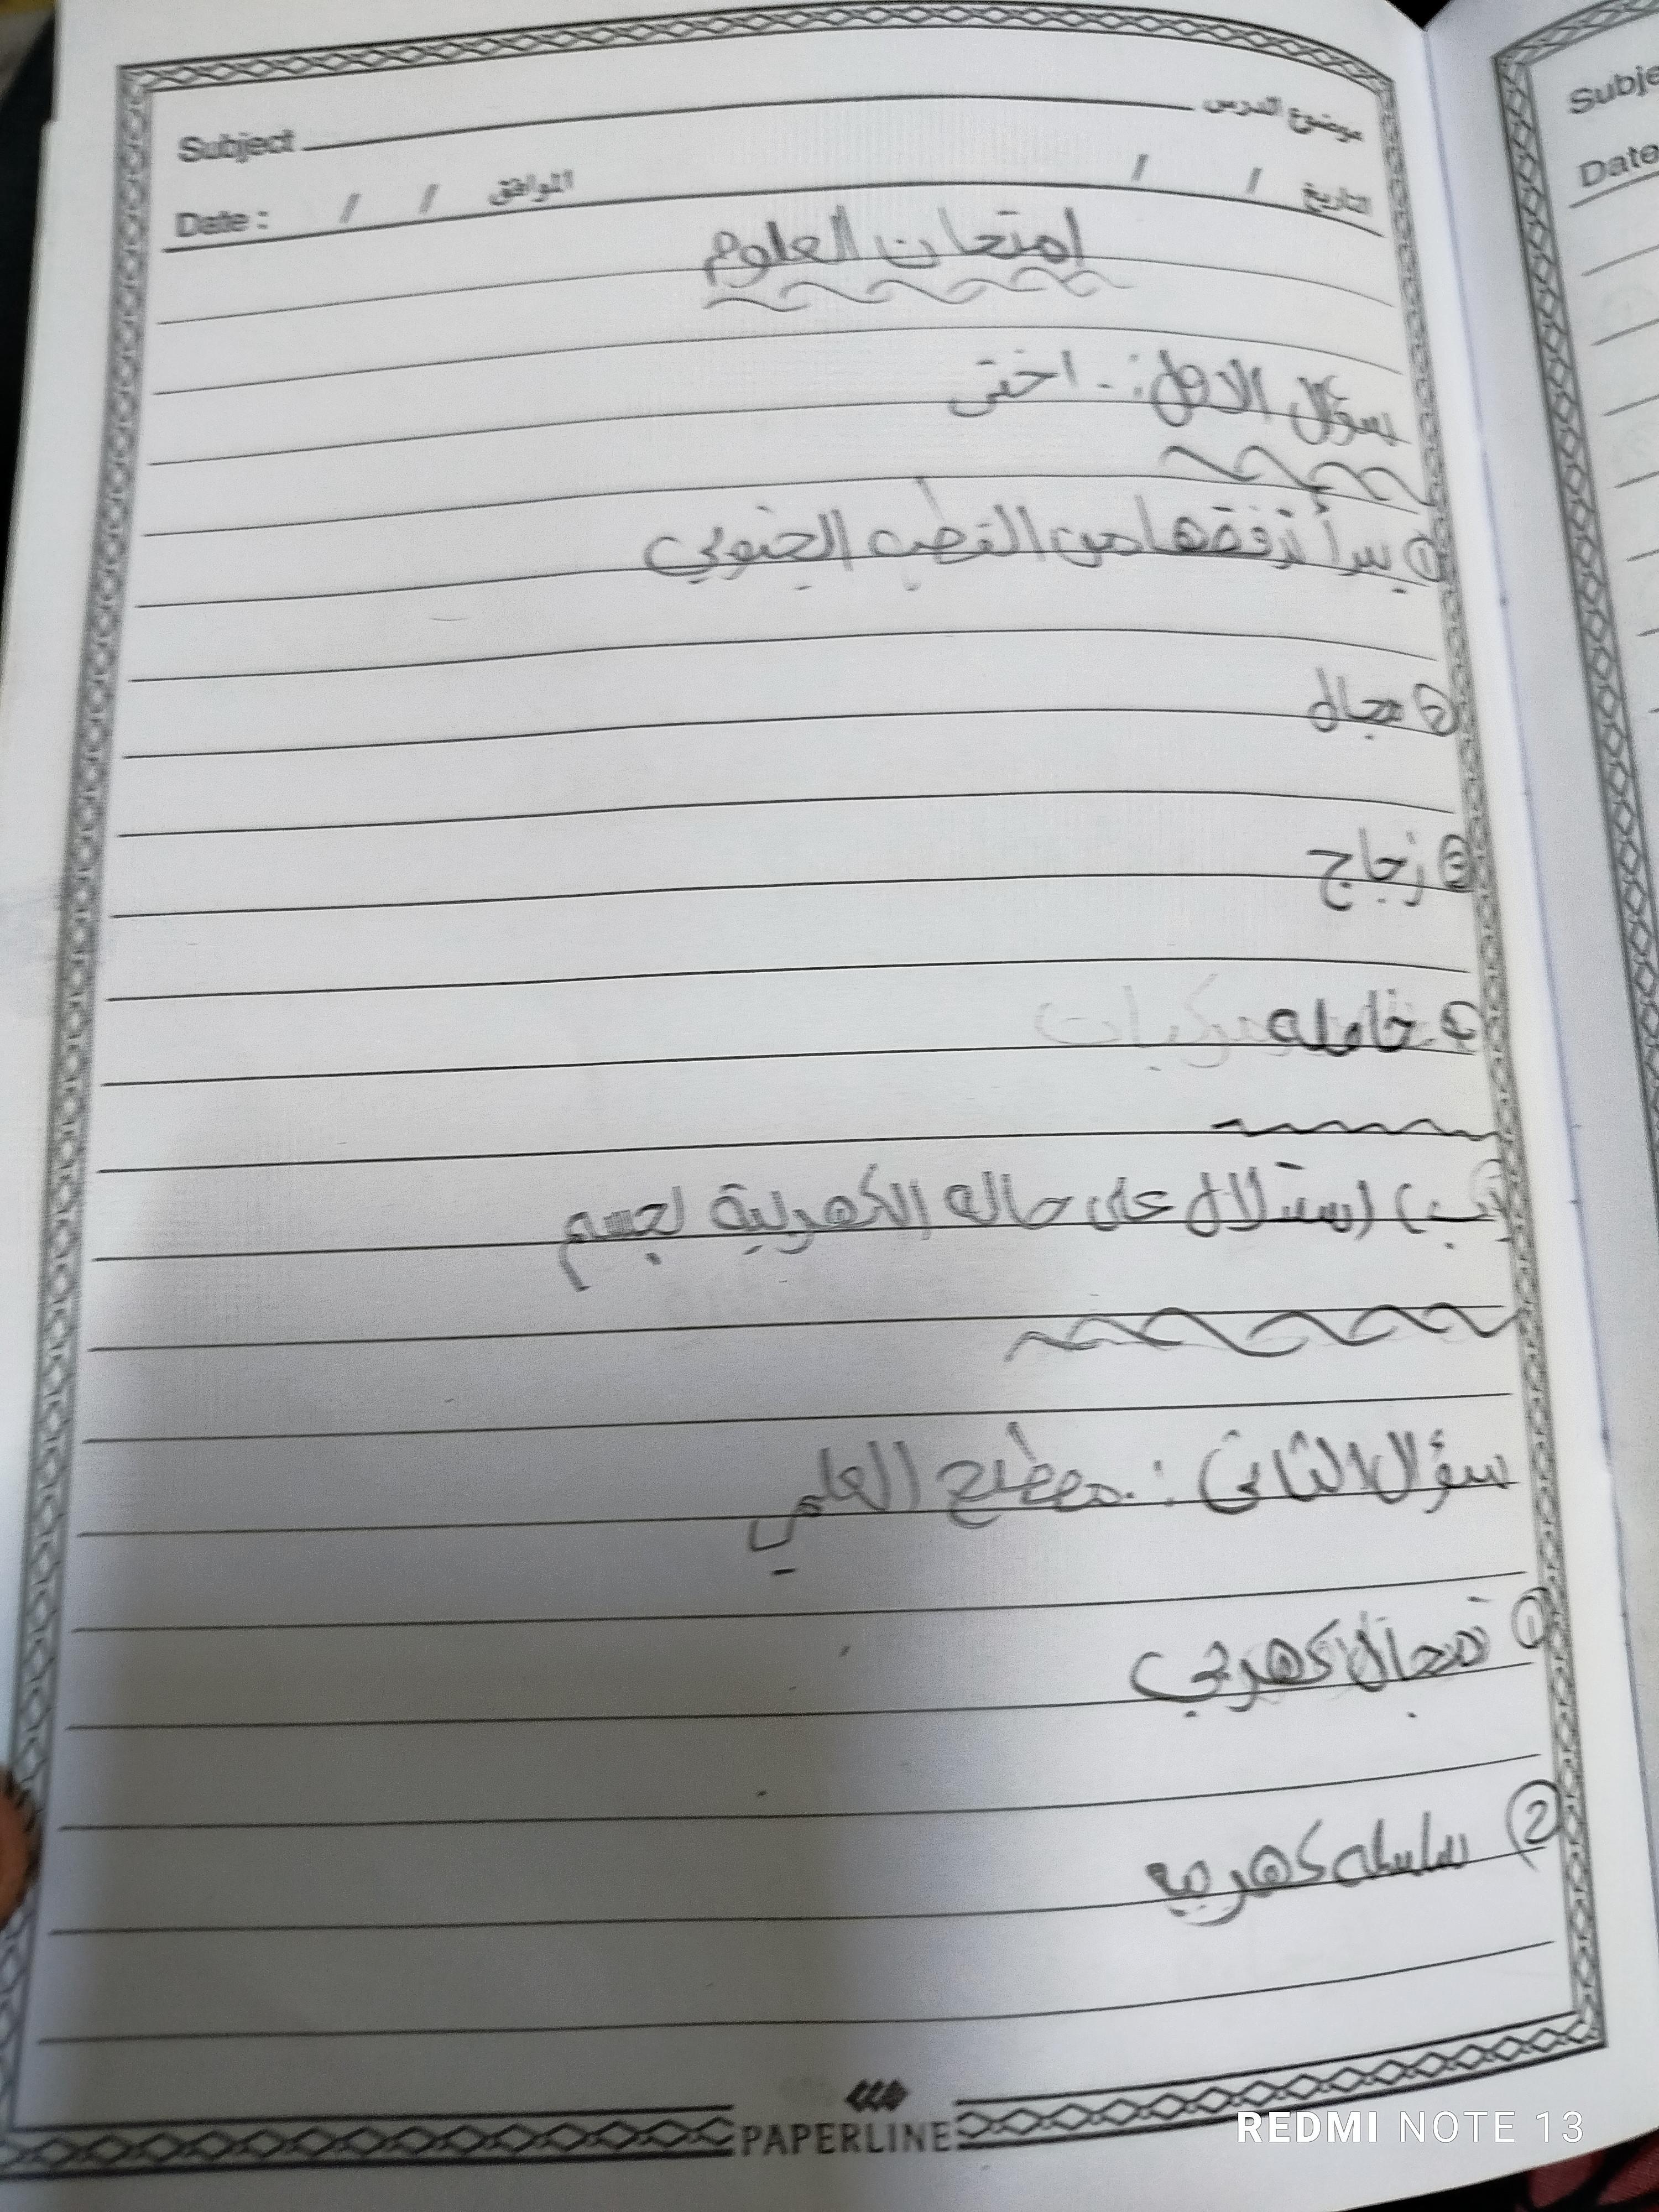 Subject موضوع الدرس
Date : / / الموافق / / التاريخ
امتحان العلوم
سؤال الاول :. اختى
① يبدأ تدفقها من القطب الجنوبي
② مجال
③ زجاج
④ خامله
ب) استلال على حاله الكهربية لجسم
سؤال الثانى :. مصطلح العلمي
① مجال كهربي
② سلسله كهربيه
PAPERLINE
REDMI NOTE 13
Subje
Date